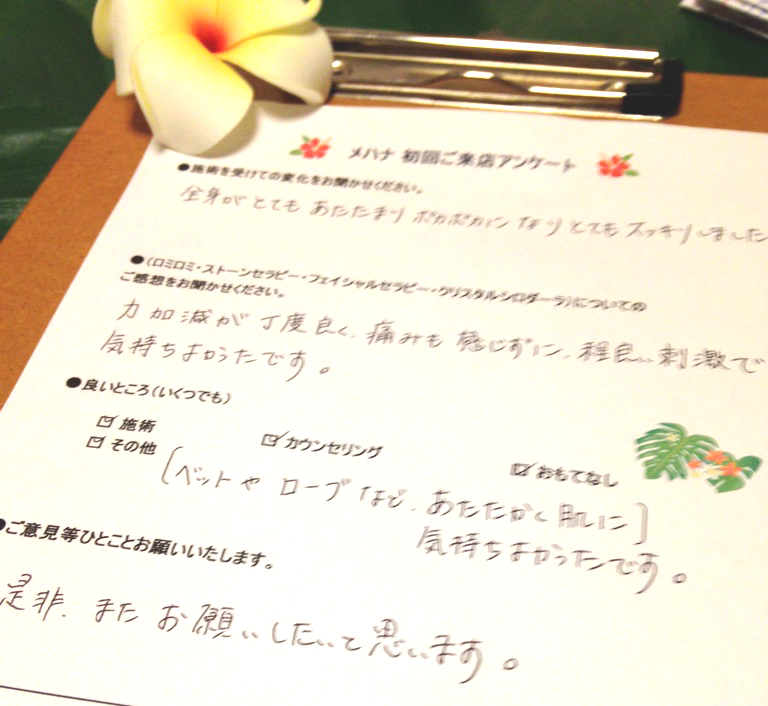 メハナ 初回ご来店アンケート
●施術を受けての変化をお聞かせください。
全身がとてもあたたまりポカポカになりとてもスッキリしました
●(ロミロミ・ストーンセラピー・フェイシャルセラピー・クリスタル・シロダーラ)についての
ご感想をお聞かせください。
力加減が丁度良く、痛みも感じずに、程良い刺激で
気持ちよかったです。
●良いところ(いくつでも)
☑ 施術 ☑ カウンセリング ☑ おもてなし
☑ その他 (ベットやローブなど、あたたかく肌に)
気持ちよかったです。
●ご意見等ひとことお願いいたします。
是非、またお願いしたいと思います。